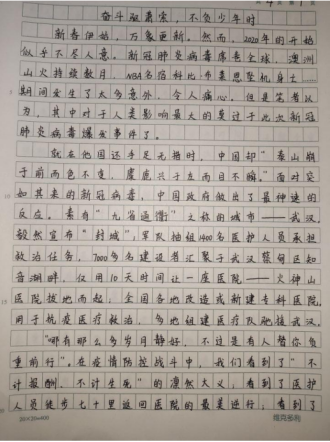 奋斗驱萧索，不负少年时
新春伊始，万象更新。然而，2020年的开始
似乎不尽人意。新冠肺炎病毒席卷全球，澳洲
山火持续数月，NBA名宿科比布莱恩坠机身亡……
期间发生了太多意外，令人痛心。但是笔者认
为，其中对于人类影响最大的莫过于此次新冠
肺炎病毒爆发事件了。
就在他国还手足无措时，中国却“泰山崩
于前而色不变，麋鹿兴于左而目不瞬。”面对突
如其来的新冠病毒，中国政府做出了最神速的
反应。素有“九省通衢”之称的城市——武汉
毅然宣布“封城”；军队抽组1400名医护人员承担
救治任务，7000多名建设者汇聚于武汉蔡甸区知
音湖畔，仅用10天时间让一座医院——火神山
医院拔地而起；全国各地改造或新建专科医院，
用于抗疫医疗救治，多地组建医疗队驰援武汉。
“哪有那么多岁月静好，不过是有人替你负
重前行”。在疫情防控战斗中，我们看到了“不
计报酬，不计生死”的凛然大义，看到了医护
人员徒步七十里返回医院的最美逆行，看到了
20×20=400